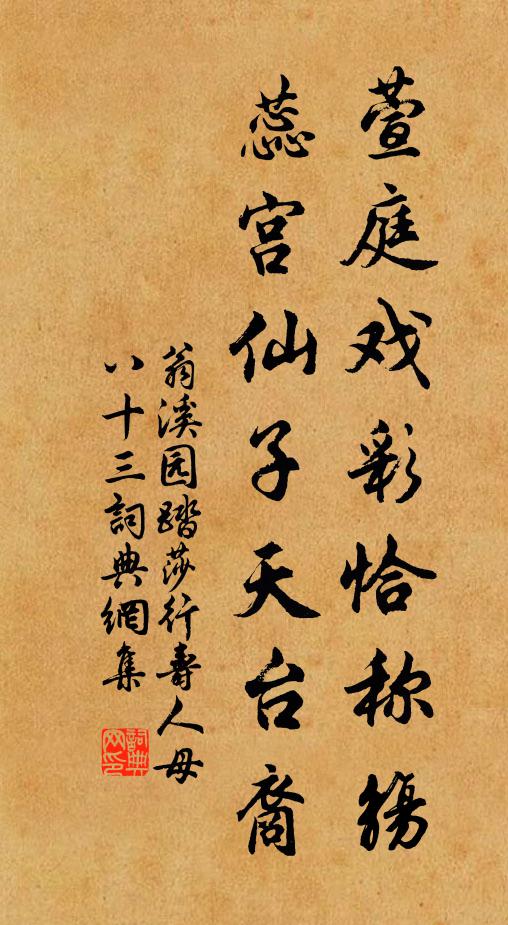 萱庭戏彩恰称觞
蕊宫仙子天台裔
翁溪园踏莎行寿人母
八十三詞典網集
詞典网印